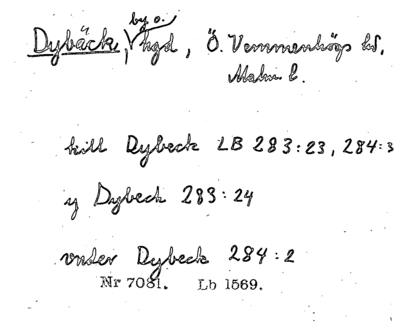 by o.
Dybäck, hgd, Ö. Vemmenhögs hd,
Malm l.
till Dybeck LB 283:23, 284:3
y Dybeck 283:24
vnder Dybeck 284:2
Nr 7081. Lb 1569.